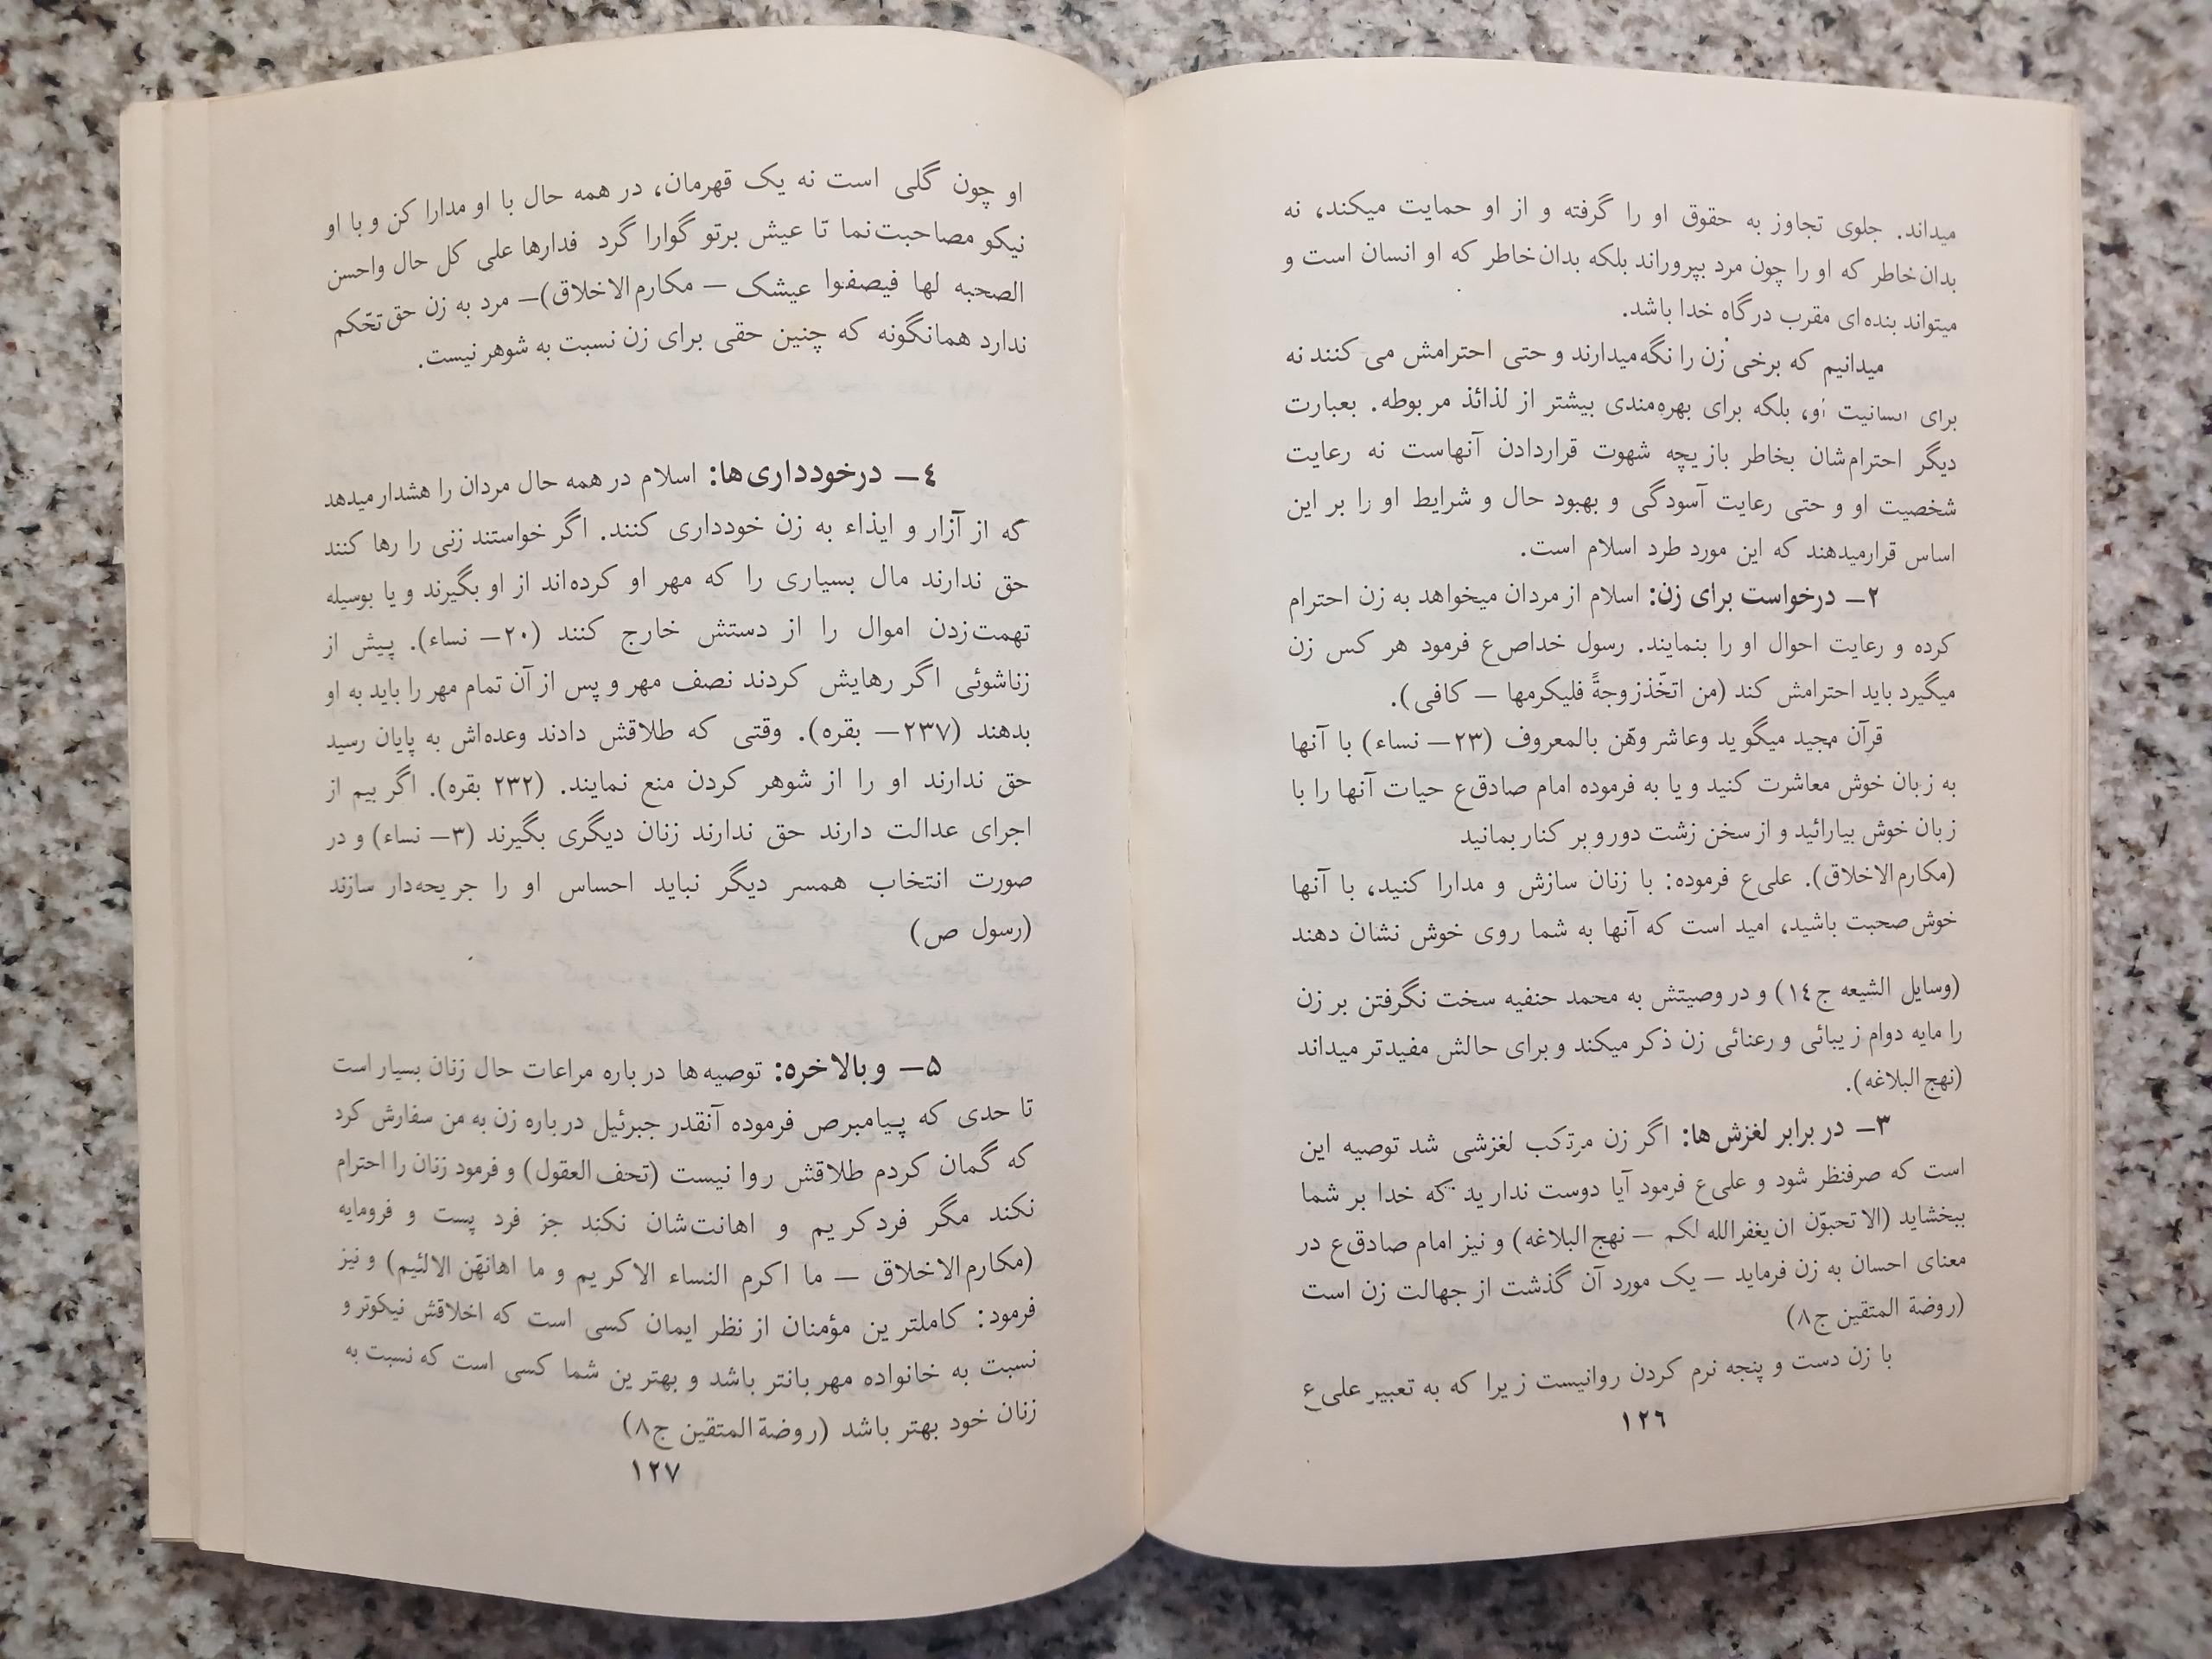 میداند. جلوی تجاوز به حقوق او را گرفته و از او حمایت میکند، نه
بدان‌خاطر که او را چون مرد بپروراند بلکه بدان‌خاطر که او انسان است و
میتواند بنده‌ای مقرب درگاه خدا باشد.
میدانیم که برخی زن را نگه‌میدارند و حتی احترامش می کنند نه
برای انسانیت او، بلکه برای بهره‌مندی بیشتر از لذائذ مربوطه. بعبارت
دیگر احترام‌شان بخاطر بازیچه شهوت قراردادن آنهاست نه رعایت
شخصیت او و حتی رعایت آسودگی و بهبود حال و شرایط او را بر این
اساس قرارمیدهند که این مورد طرد اسلام است.
۲ـ درخواست برای زن: اسلام از مردان میخواهد به زن احترام
کرده و رعایت احوال او را بنمایند. رسول خداص‌ع فرمود هر کس زن
میگیرد باید احترامش کند (من اتخّذزوجةً فلیکرمها ـ کافی).
قرآن مجید میگوید وعاشروهّن بالمعروف (۲۳ـ نساء) با آنها
به زبان خوش معاشرت کنید و یا به فرموده امام صادق‌ع حیات آنها را با
زبان خوش بیارائید و از سخن زشت دور و بر کنار بمانید
(مکارم‌الاخلاق). علی‌ع فرموده: با زنان سازش و مدارا کنید، با آنها
خوش‌صحبت باشید، امید است که آنها به شما روی خوش نشان دهند
(وسایل الشیعه ج۱۴) و در وصیتش به محمد حنفیه سخت نگرفتن بر زن
را مایه دوام زیبائی و رعنائی زن ذکر میکند و برای حالش مفیدتر میداند
(نهج‌البلاغه).
۳ـ در برابر لغزش‌ها: اگر زن مرتکب لغزشی شد توصیه این
است که صرفنظر شود و علی‌ع فرمود آیا دوست ندارید که خدا بر شما
ببخشاید (الاتحبوّن ان‌یغفرالله لکم ـ نهج‌البلاغه) و نیز امام صادق‌ع در
معنای احسان به زن فرماید ـ یک مورد آن گذشت از جهالت زن است
(روضة المتقین ج۸)
با زن دست و پنجه نرم کردن روانیست زیرا که به تعبیر علی‌ع
۱۲۶
او چون گلی است نه یک قهرمان، در همه حال با او مدارا کن و با او
نیکو مصاحبت‌نما تا عیش برتو گوارا گرد فدارها علی کل حال واحسن
الصحبه لها فیصفوا عیشک ـ مکارم‌الاخلاق)ـ مرد به زن حق تحّکم
ندارد همانگونه که چنین حقی برای زن نسبت به شوهر نیست.
۴ـ درخودداری‌ها: اسلام در همه حال مردان را هشدارمیدهد
که از آزار و ایذاء به زن خودداری کنند. اگر خواستند زنی را رها کنند
حق ندارند مال بسیاری را که مهر او کرده‌اند از او بگیرند و یا بوسیله
تهمت‌زدن اموال را از دستش خارج کنند (۲۰ـ نساء). پیش از
زناشوئی اگر رهایش کردند نصف مهر و پس از آن تمام مهر را باید به او
بدهند (۲۳۷ـ بقره). وقتی که طلاقش دادند وعده‌اش به پایان رسید
حق ندارند او را از شوهر کردن منع نمایند. (۲۳۲ بقره). اگر بیم از
اجرای عدالت دارند حق ندارند زنان دیگری بگیرند (۳ـ نساء) و در
صورت انتخاب همسر دیگر نباید احساس او را جریحه‌دار سازند
(رسول ص)
۵ـ و بالاخره: توصیه‌ها درباره مراعات حال زنان بسیار است
تا حدی که پیامبرص فرموده آنقدر جبرئیل درباره زن به من سفارش کرد
که گمان کردم طلاقش روا نیست (تحف‌العقول) و فرمود زنان را احترام
نکند مگر فردکریم و اهانت‌شان نکند جز فرد پست و فرومایه
(مکارم‌الاخلاق ـ ما اکرم النساء الاکریم و ما اهانهّن الالئیم) و نیز
فرمود: کاملترین مؤمنان از نظر ایمان کسی است که اخلاقش نیکوتر و
نسبت به خانواده مهربانتر باشد و بهترین شما کسی است که نسبت به
زنان خود بهتر باشد (روضة‌المتقین ج۸)
۱۲۷